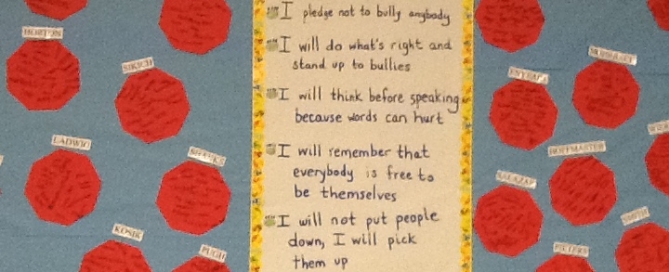 I pledge not to bully anybody
I will do what's right and
stand up to bullies
I will think before speaking
because words can hurt
I will remember that
everybody is free to
be themselves
I will not put people
down, I will pick
them up
HORTON
SIKICH
LADWIG
KOSIK
PUGH
HOFFMASTER
SALAZAR
SMITH
PIETERS